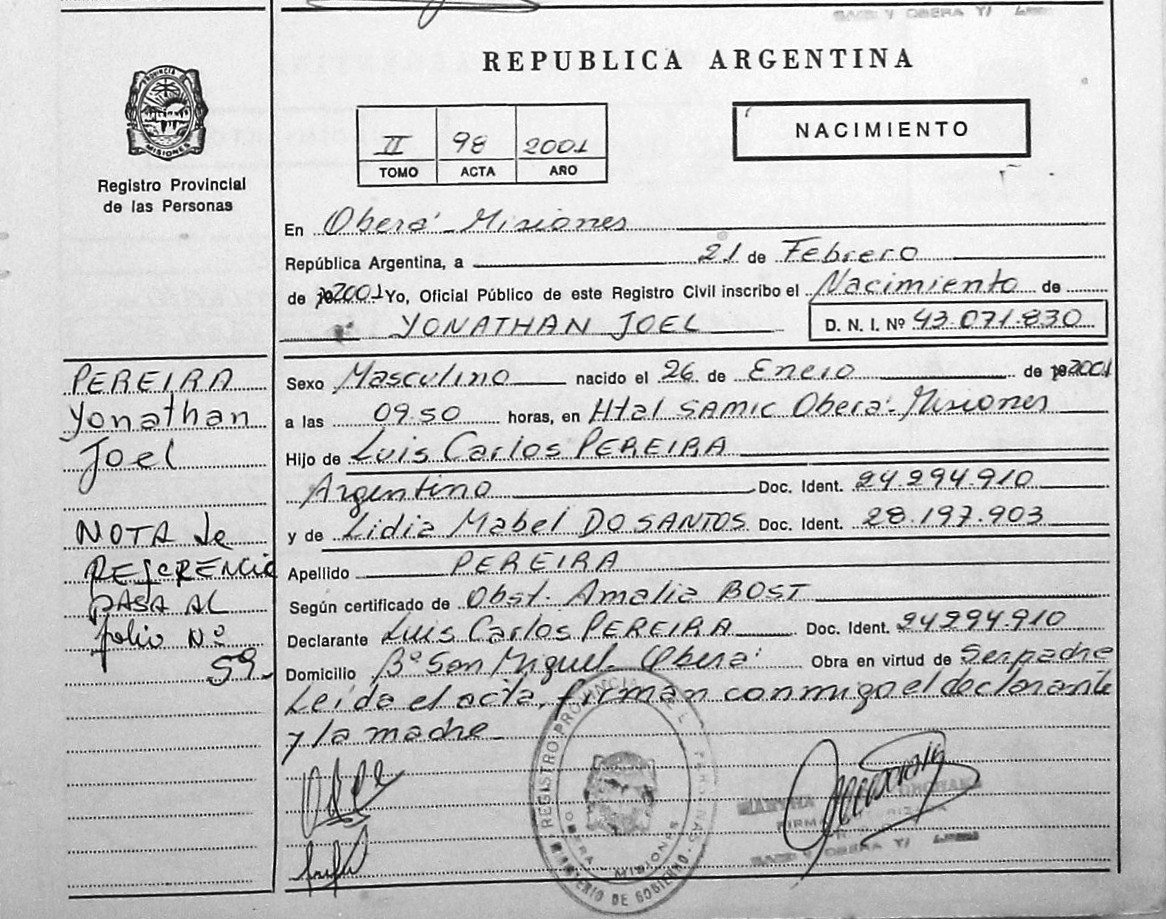 REPUBLICA ARGENTINA
PROVINCIA DE
MISIONES
Registro Provincial
de las Personas
II 98 2001
TOMO ACTA AÑO
NACIMIENTO
En Oberá - Misiones
República Argentina, a 21 de Febrero
de 2001 Yo, Oficial Público de este Registro Civil inscribo el Nacimiento de
YONATHAN JOEL D. N. I. Nº 43.071.830
PEREIRA
Yonathan
Joel
NOTA de
REFERENCIA
PASA AL
folio Nº
59.-
Sexo Masculino nacido el 26 de Enero de 2001
a las 09.50 horas, en Htal SAMIC Oberá - Misiones
Hijo de Luis Carlos PEREIRA
Argentino Doc. Ident. 24.294.910
y de Lidia Mabel DO SANTOS Doc. Ident. 28.197.903
Apellido PEREIRA
Según certificado de Obst. Amalia BOST
Declarante Luis Carlos PEREIRA Doc. Ident. 24294.910
Domicilio Bº San Miguel - Oberá Obra en virtud de Ser padre
Leída el acta, firman conmigo el declarante
y la madre -
REGISTRO PROVINCIAL PERSONAS
OBERA MISIONES
MINISTERIO DE GOBIERNO